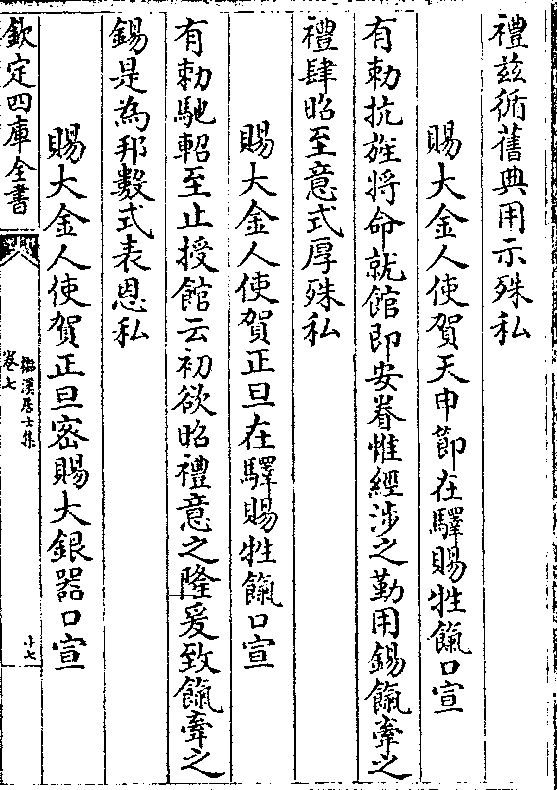 禮兹循舊典用示殊私
賜大金人使賀天申節在驛賜牲餼口宣
有勅抗旌將命就館即安眷惟經涉之勤用錫餼牽之
禮肆昭至意式厚殊私
賜大金人使賀正旦在驛賜牲餼口宣
有勅馳軺至止授館云初欲昭禮意之隆爰致餼牽之
錫是為邦數式表恩私
賜大金人使賀正旦密賜大銀器口宣
欽定四庫全書
卷七
十七